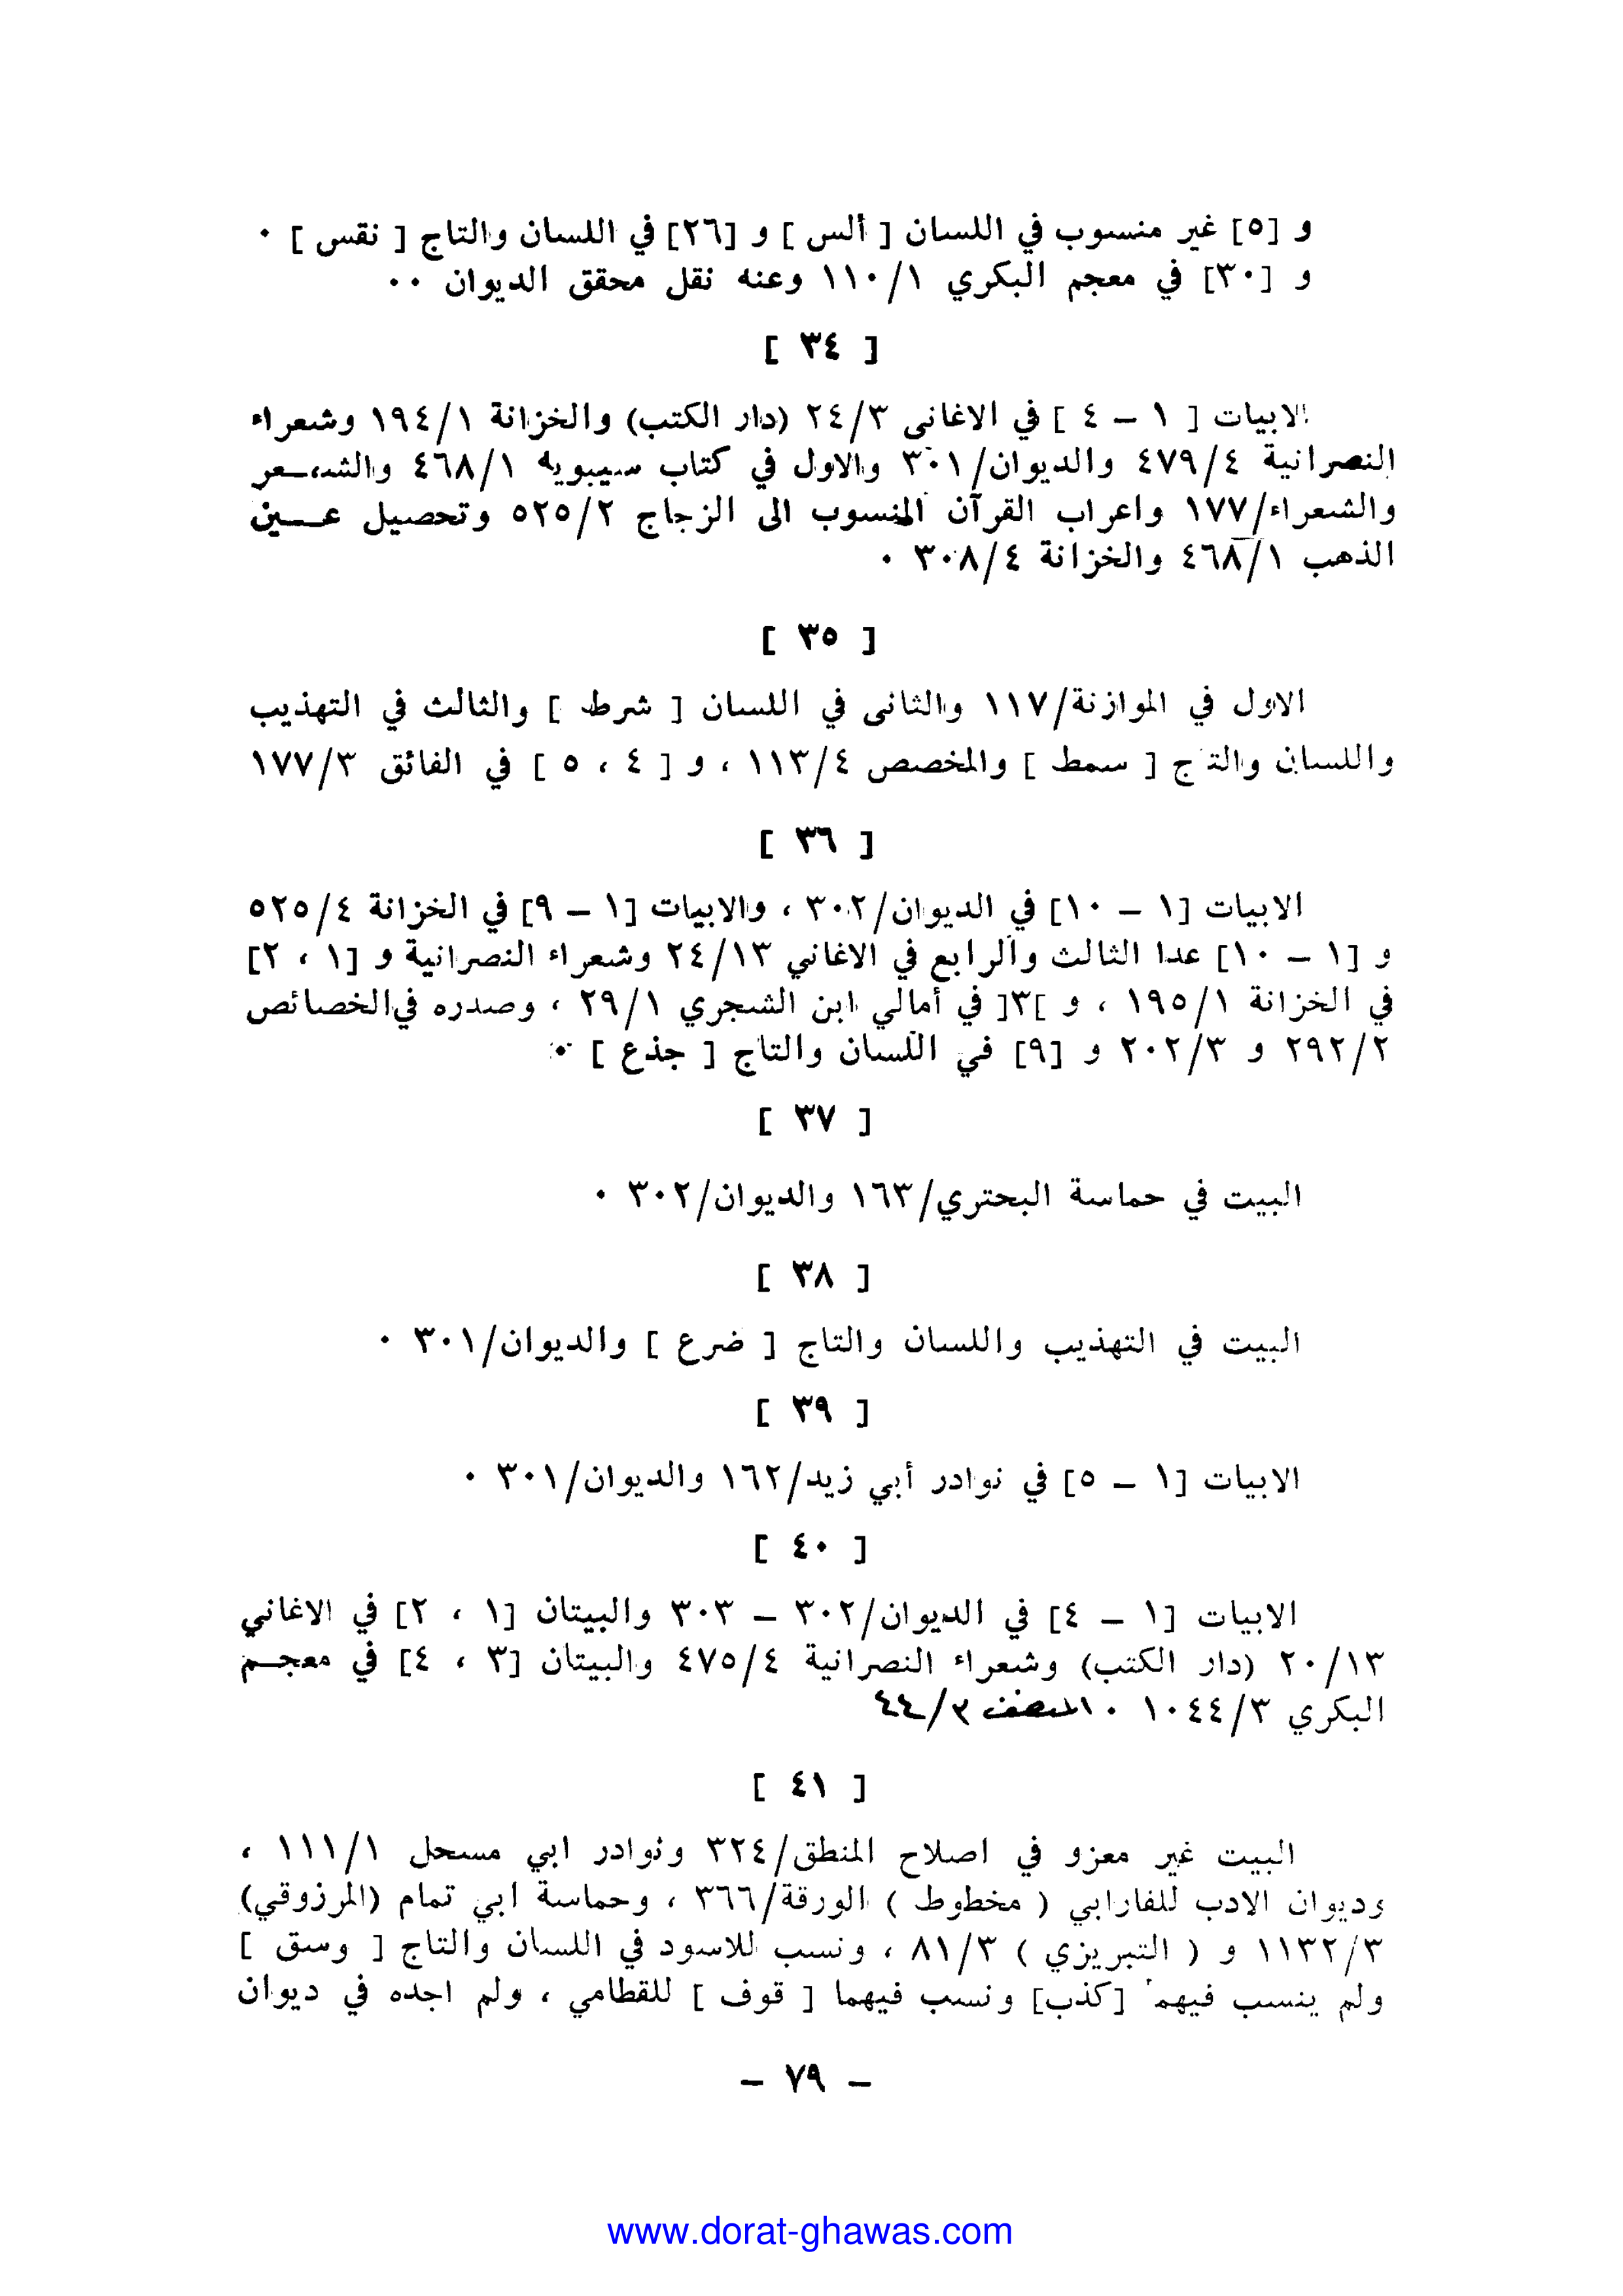 و [٥] غير منسوب في اللسان [ ألس ] و [٢٦] في اللسان والتاج [ نقس ] ٠
و [٣٠] في معجم البكري ١١٠/١ وعنه نقل محقق الديوان ٠٠
[ ٣٤ ]
الابيات [ ١ – ٤ ] في الاغانى ٢٤/٣ (دار الكتب) والخزانة ١٩٤/١ وشعراء
النصرانية ٤٧٩/٤ والديوان/٣٠١ والاول في كتاب سيبويه ٤٦٨/١ والشعر
والشعراء/١٧٧ واعراب القرآن المنسوب الى الزجاج ٥٢٥/٢ وتحصيل عـــين
الذهب ٤٦٨/١ والخزانة ٣٠٨/٤ ٠
[ ٣٥ ]
الاول في الموازنة/١١٧ والثانى في اللسان [ شرط ] والثالث في التهذيب
واللسان والتاج [ سمط ] والمخصص ١١٣/٤ ، و [ ٤ ، ٥ ] في الفائق ١٧٧/٣
[ ٣٦ ]
الابيات [١ – ١٠] في الديوان/٣٠٢ ، والابيات [١ – ٩] في الخزانة ٥٢٥/٤
و [١ – ١٠] عدا الثالث والرابع في الاغاني ٢٤/١٣ وشعراء النصرانية و [١ ، ٢]
في الخزانة ١٩٥/١ ، و ]٣[ في أمالي ابن الشجري ٢٩/١ ، وصدره في الخصائص
٢٩٢/٢ و ٢٠٢/٣ و [٩] في اللسان والتاج [ جذع ] ٠
[ ٣٧ ]
البيت في حماسة البحتري/١٦٣ والديوان/٣٠٢ ٠
[ ٣٨ ]
البيت في التهذيب واللسان والتاج [ ضرع ] والديوان/٣٠١ ٠
[ ٣٩ ]
الابيات [١ – ٥] في نوادر أبي زيد/١٦٢ والديوان/٣٠١ ٠
[ ٤٠ ]
الابيات [١ – ٤] في الديوان/٣٠٢ – ٣٠٣ والبيتان [١ ، ٢] في الاغاني
٢٠/١٣ (دار الكتب) وشعراء النصرانية ٤٧٥/٤ والبيتان [٣ ، ٤] في معجـم
البكري ١٠٤٤/٣ ٠ المنصف ٤٤/٣
[ ٤١ ]
البيت غير معزو في اصلاح المنطق/٣٢٤ ونوادر ابي مسحل ١١١/١ ،
وديوان الادب للفارابي ( مخطوط ) الورقة/٣٦٦ ، وحماسة ابي تمام (المرزوقي)
١١٣٢/٣ و ( التبريزي ) ٨١/٣ ، ونسب للاسود في اللسان والتاج [ وسق ]
ولم ينسب فيهما [كذب] ونسب فيهما [ قوف ] للقطامي ، ولم اجده في ديوان
– ٧٩ –
www.dorat-ghawas.com